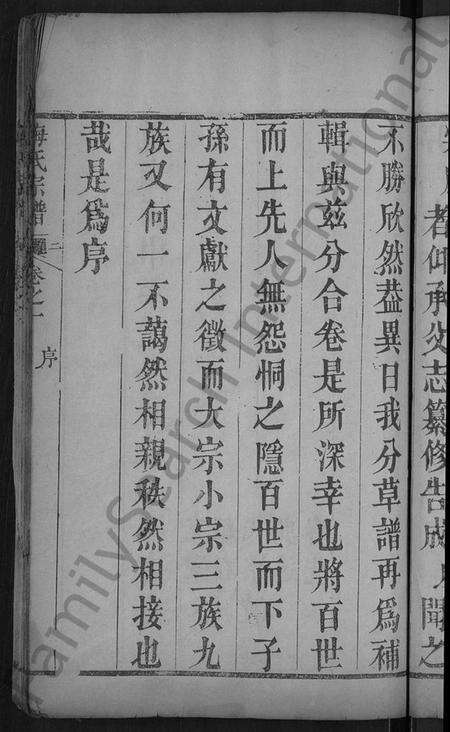 者仰承父志纂修告成人聞之
不勝欣然葢異日我分草譜再爲補
輯與茲分合卷是所深幸也將百世
而上先人無怨恫之隱百世而下子
孫有文獻之徵而大宗小宗三族九
族又何一不藹然相親秩然相接也
哉是爲序
氏宗譜 卷之一 序
FamilySearch International